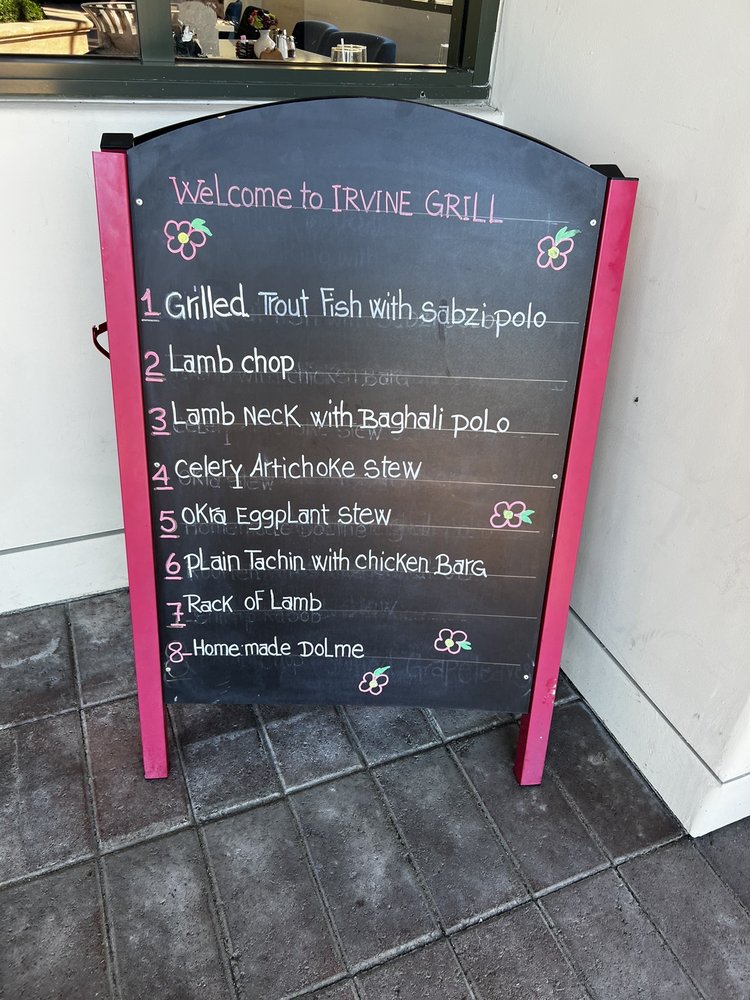 Welcome to IRVINE GRILL
1 Grilled Trout Fish with Sabzi polo
2 Lamb chop
3 Lamb Neck with Baghali polo
4 celery Artichoke stew
5 Okra Eggplant stew
6 Plain Tachin with chicken Barg
7 Rack of Lamb
8 Homemade Dolme